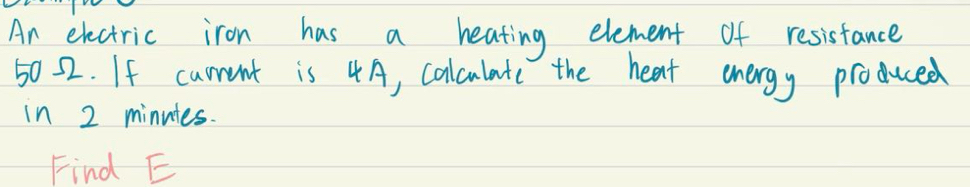 An electric iron has a heating element of resistance
50 Ω. If current is 4A, calculate the heat energy produced
in 2 minutes.
Find E